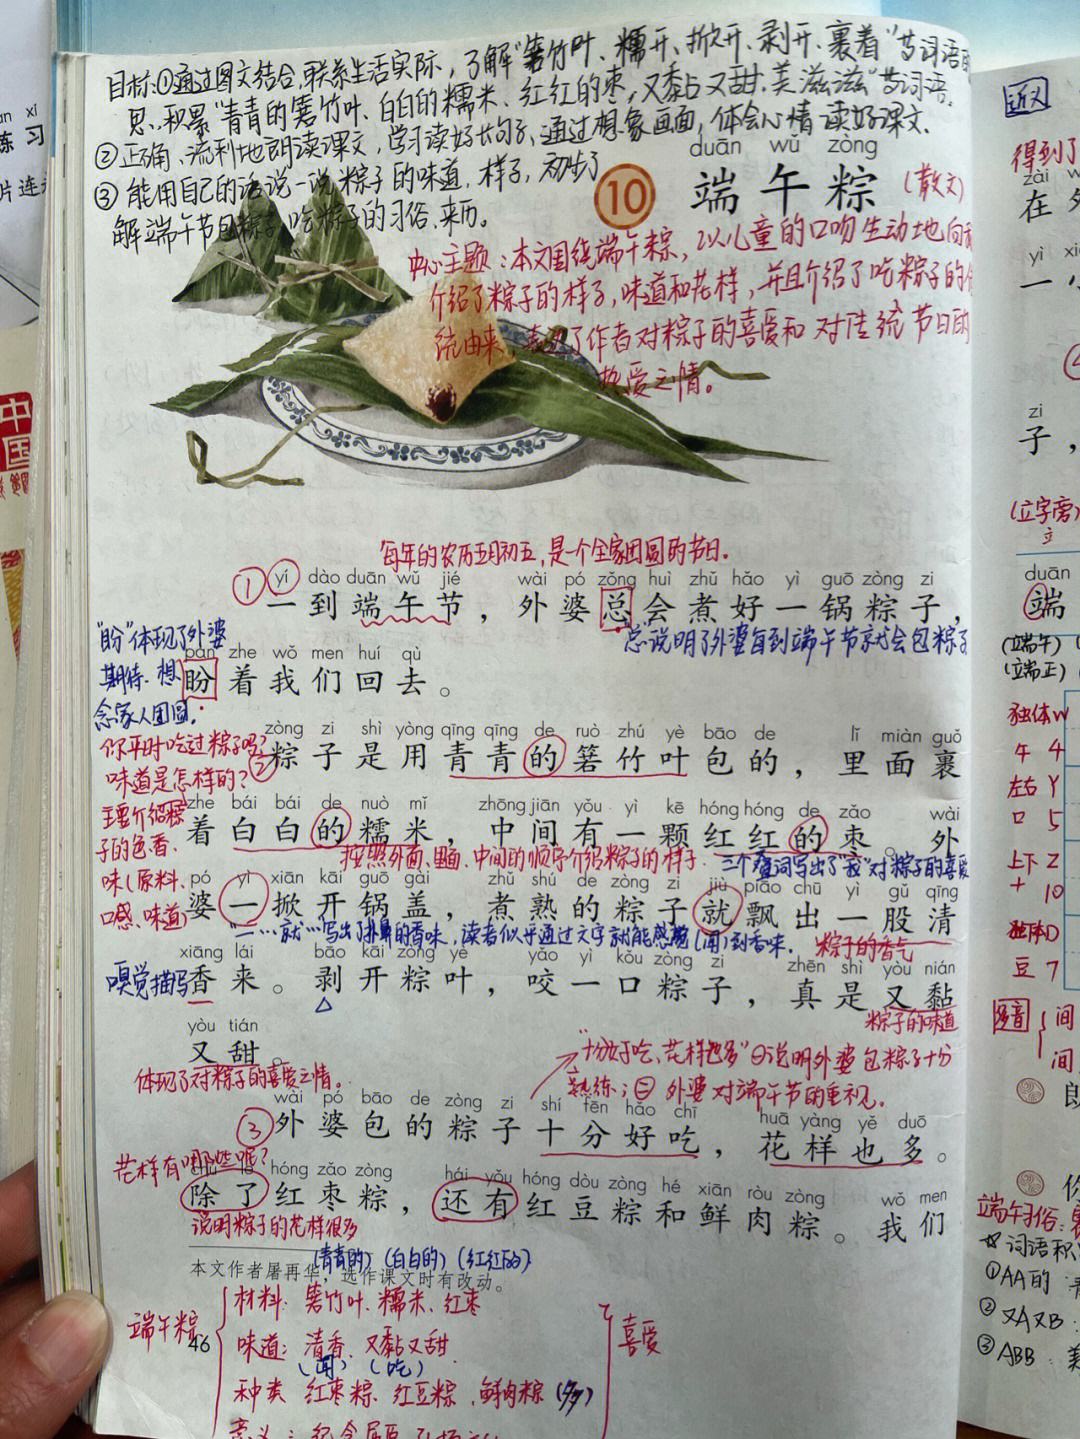 目标:①通过图文结合,联系生活实际,了解"箬竹叶、糯开、掀开、剥开、裹着"等词语的
思,积累"青青的箬竹叶、白白的糯米、红红的枣,又黏又甜,美滋滋"等词语.
②正确、流利地朗读课文,学习读好长句子,通过想象画面,体会心情读好课文.
③能用自己的话说一说粽子的味道,样子,初步了
解端午节包粽子,吃粽子的习俗、来历。
duān wǔ zòng
10 端午粽 (散文)
中心主题:本文围绕端午粽,以儿童的口吻生动地向
介绍了粽子的样子,味道和花样,并且介绍了吃粽子的
统由来,表达了作者对粽子的喜爱和对传统节日的
热爱之情。
每年的农历五月初五,是一个全家团圆的节日。
① yí dào duān wǔ jié wài pó zǒng huì zhǔ hǎo yì guō zòng zi
一到端午节,外婆总会煮好一锅粽子,
总说明了外婆每到端午节就会包粽子
"盼"体现了外婆
期待、想
念家人团圆.
pàn zhe wǒ men huí qù
盼着我们回去。
你平时吃过粽子吗?
味道是怎样的?
② zòng zi shì yòng qīng qīng de ruò zhú yè bāo de lǐ miàn guǒ
粽子是用青青的箬竹叶包的,里面裹
主要介绍粽
子的色、香、
味(原料、
口感、味道)
zhe bái bái de nuò mǐ zhōng jiān yǒu yì kē hóng hóng de zǎo wài
着白白的糯米,中间有一颗红红的枣。外
按照外面、里面、中间的顺序介绍粽子的样子.
三个叠词写出了"我"对粽子的喜爱
pó yì xiān kāi guō gài zhǔ shú de zòng zi jiù piāo chū yì gǔ qīng
婆一掀开锅盖,煮熟的粽子就飘出一股清
"一……就"写出了扑鼻的香味,读者似乎通过文字就能感觉(闻)到香味.
粽子的香气
嗅觉描写
xiāng lái bāo kāi zòng yè yǎo yì kǒu zòng zi zhēn shì yòu nián
香来。剥开粽叶,咬一口粽子,真是又黏
粽子的味道
yòu tián
又甜。
体现了对粽子的喜爱之情。
"十分好吃、花样也多"㊀说明外婆包粽子十分
熟练;㊁外婆对端午节的重视。
③ wài pó bāo de zòng zi shí fēn hǎo chī huā yàng yě duō
外婆包的粽子十分好吃,花样也多。
花样有哪些呢?
chú le hóng zǎo zòng hái yǒu hóng dòu zòng hé xiān ròu zòng wǒ men
除了红枣粽,还有红豆粽和鲜肉粽。我们
说明粽子的花样很多
(青青的) (白白的) (红红的)
本文作者屠再华,选作课文时有改动。
端午粽
材料:箬竹叶、糯米、红枣
味道:清香、又黏又甜
(闻) (吃)
种类 红枣粽、红豆粽、鲜肉粽(多)
喜爱
46
近义
得到了
zài
在
yì
一
zi
子,
(立字旁)
立
duān
端
(端午)
(端正)
独体
午 4
左右
口 5
上下
十 10
独体
豆 7
多音
间
间
端午习俗:
☆词语积
①AA的
②又A又B:
③ABB:
中国
练习